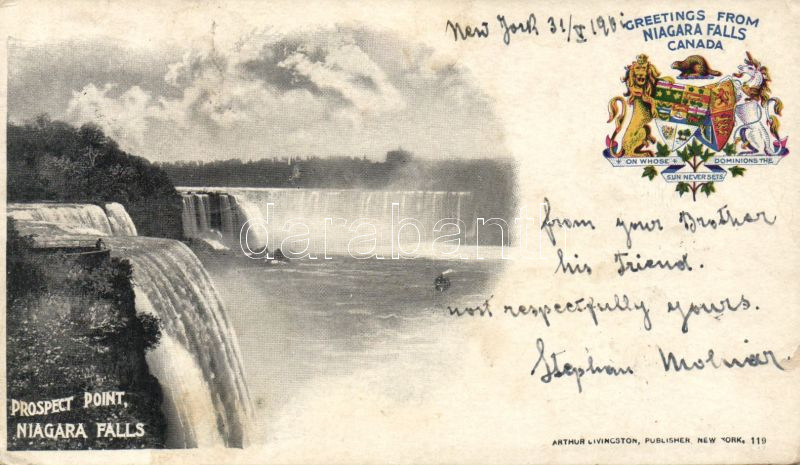 New York 31/V 1901
GREETINGS FROM
NIAGARA FALLS
CANADA
ON WHOSE DOMINIONS THE
SUN NEVER SETS
from your Brother
his Friend.
most respectfully yours.
Stephan Molnár
darabanth
PROSPECT POINT,
NIAGARA FALLS
ARTHUR LIVINGSTON, PUBLISHER, NEW YORK, 119